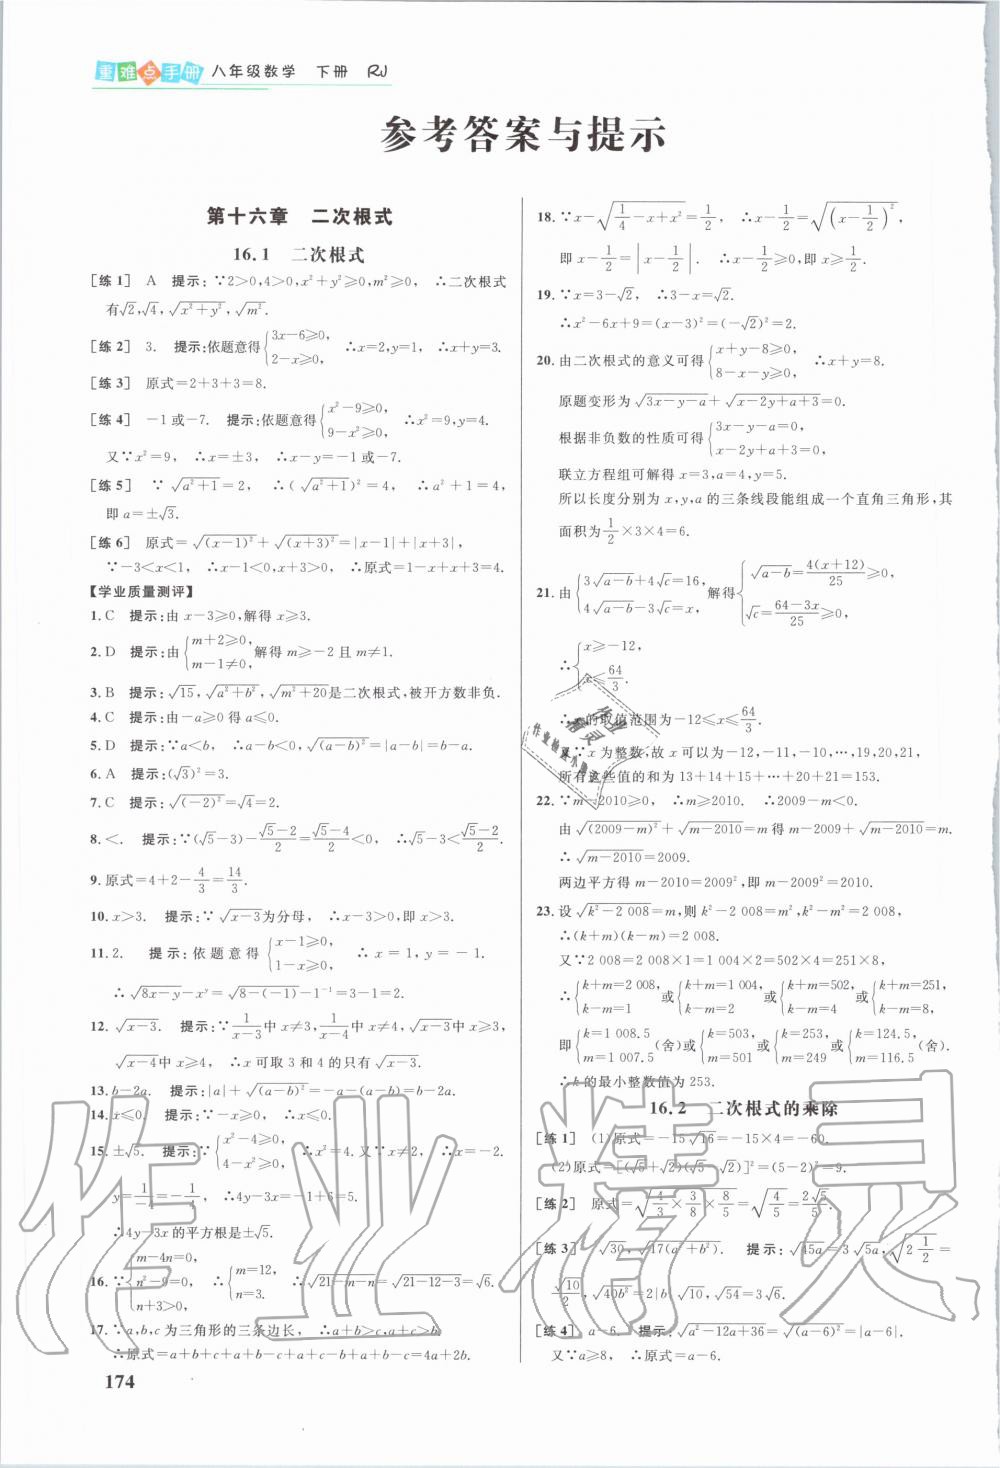 重难点手册 八年级数学 下册 RJ
参考答案与提示
第十六章 二次根式
16.1 二次根式
[练1] A 提示:∵2>0,4>0,x²+y²≥0,m²≥0, ∴二次根式
有√2,√4,√(x²+y²),√(m²).
[练2] 3. 提示:依题意得{3x-6≥0, 2-x≥0, ∴x=2,y=1, ∴x+y=3.
[练3] 原式=2+3+3=8.
[练4] -1或-7. 提示:依题意得{x²-9≥0, 9-x²≥0, ∴x²=9,y=4.
又∵x²=9, ∴x=±3, ∴x-y=-1或-7.
[练5] ∵√(a²+1)=2, ∴(√(a²+1))²=4, ∴a²+1=4,
即a=±√3.
[练6] 原式=√((x-1)²)+√((x+3)²)=|x-1|+|x+3|,
∵-3<x<1, ∴x-1<0,x+3>0, ∴原式=1-x+x+3=4.
【学业质量测评】
1.C 提示:由x-3≥0,解得x≥3.
2.D 提示:由{m+2≥0, m-1≠0, 解得m≥-2且m≠1.
3.B 提示:√15,√(a²+b²),√(m²+20)是二次根式,被开方数非负.
4.C 提示:由-a≥0得a≤0.
5.D 提示:∵a<b, ∴a-b<0, ∴√((a-b)²)=|a-b|=b-a.
6.A 提示:(√3)²=3.
7.C 提示:√((-2)²)=√4=2.
8.<. 提示:∵(√5-3)-(√5-2)/2=(√5-4)/2<0, ∴√5-3<(√5-2)/2.
9.原式=4+2-4/3=14/3.
10.x>3. 提示:∵√(x-3)为分母, ∴x-3>0,即x>3.
11.2. 提示:依题意得{x-1≥0, 1-x≥0, ∴x=1,y=-1.
∴√(8x-y)-x^y=√(8-(-1))-1⁻¹=3-1=2.
12.√(x-3). 提示:∵1/(x-3)中x≠3,1/(x-4)中x≠4,√(x-3)中x≥3,
√(x-4)中x≥4, ∴x可取3和4的只有√(x-3).
13.b-2a. 提示:|a|+√((a-b)²)=-a-(a-b)=b-2a.
14.x≤0. 提示:∵-x≥0, ∴x≤0.
15.±√5. 提示:∵{x²-4≥0, 4-x²≥0, ∴x²=4.又∵x≠2, ∴x=-2.
y=1/-4=-1/4, ∴4y-3x=-1+6=5.
∴4y-3x的平方根是±√5.
16.∵{m-4n=0, n²-9=0, n+3>0, ∴{m=12, n=3. ∴√(21-m-n)=√(21-12-3)=√6.
17.∵a,b,c为三角形的三条边长, ∴a+b>c,a+c>b.
∴原式=a+b+c+a+b-c+a+b-c-a+b+c=4a+2b.
174
18.∵x-√(1/4-x+x²)=1/2, ∴x-1/2=√((x-1/2)²),
即x-1/2=|x-1/2|. ∴x-1/2≥0,即x≥1/2.
19.∵x=3-√2, ∴3-x=√2.
∴x²-6x+9=(x-3)²=(-√2)²=2.
20.由二次根式的意义可得{x+y-8≥0, 8-x-y≥0, ∴x+y=8.
原题变形为√(3x-y-a)+√(x-2y+a+3)=0.
根据非负数的性质可得{3x-y-a=0, x-2y+a+3=0,
联立方程组可解得x=3,a=4,y=5.
所以长度分别为x,y,a的三条线段能组成一个直角三角形,其
面积为1/2×3×4=6.
21.由{3√(a-b)+4√c=16, 4√(a-b)-3√c=x, 解得{√(a-b)=4(x+12)/25≥0, √c=(64-3x)/25≥0,
∴{x≥-12, x≤64/3.
∴x的取值范围为-12≤x≤64/3.
又∵x为整数,故x可以为-12,-11,-10,…,19,20,21,
所有这些值的和为13+14+15+…+20+21=153.
22.∵m-2010≥0, ∴m≥2010. ∴2009-m<0.
由√((2009-m)²)+√(m-2010)=m得m-2009+√(m-2010)=m.
∴√(m-2010)=2009.
两边平方得m-2010=2009²,即m-2009²=2010.
23.设√(k²-2 008)=m,则k²-2 008=m²,k²-m²=2 008,
∴(k+m)(k-m)=2 008.
又∵2 008=2 008×1=1 004×2=502×4=251×8,
∴{k+m=2 008, k-m=1 或{k+m=1 004, k-m=2 或{k+m=502, k-m=4 或{k+m=251, k-m=8,
即{k=1 008.5 m=1 007.5 (舍)或{k=503, m=501 或{k=253, m=249 或{k=124.5, m=116.5 (舍).
∴k的最小整数值为253.
16.2 二次根式的乘除
[练1] (1)原式=-15√16=-15×4=-60.
(2)原式=[(√5+√2)(√5-√2)]²=(5-2)²=9.
[练2] 原式=√(4/3×3/8×8/5)=√(4/5)=2√5/5.
[练3] √30,√(17(a²+b²)). 提示:√(45a)=3√(5a),√(2 1/2)=
√10/2,√(40b²)=2|b|√10,√54=3√6.
[练4] a-6. 提示:√(a²-12a+36)=√((a-6)²)=|a-6|.
又∵a≥8, ∴原式=a-6.
作业精灵